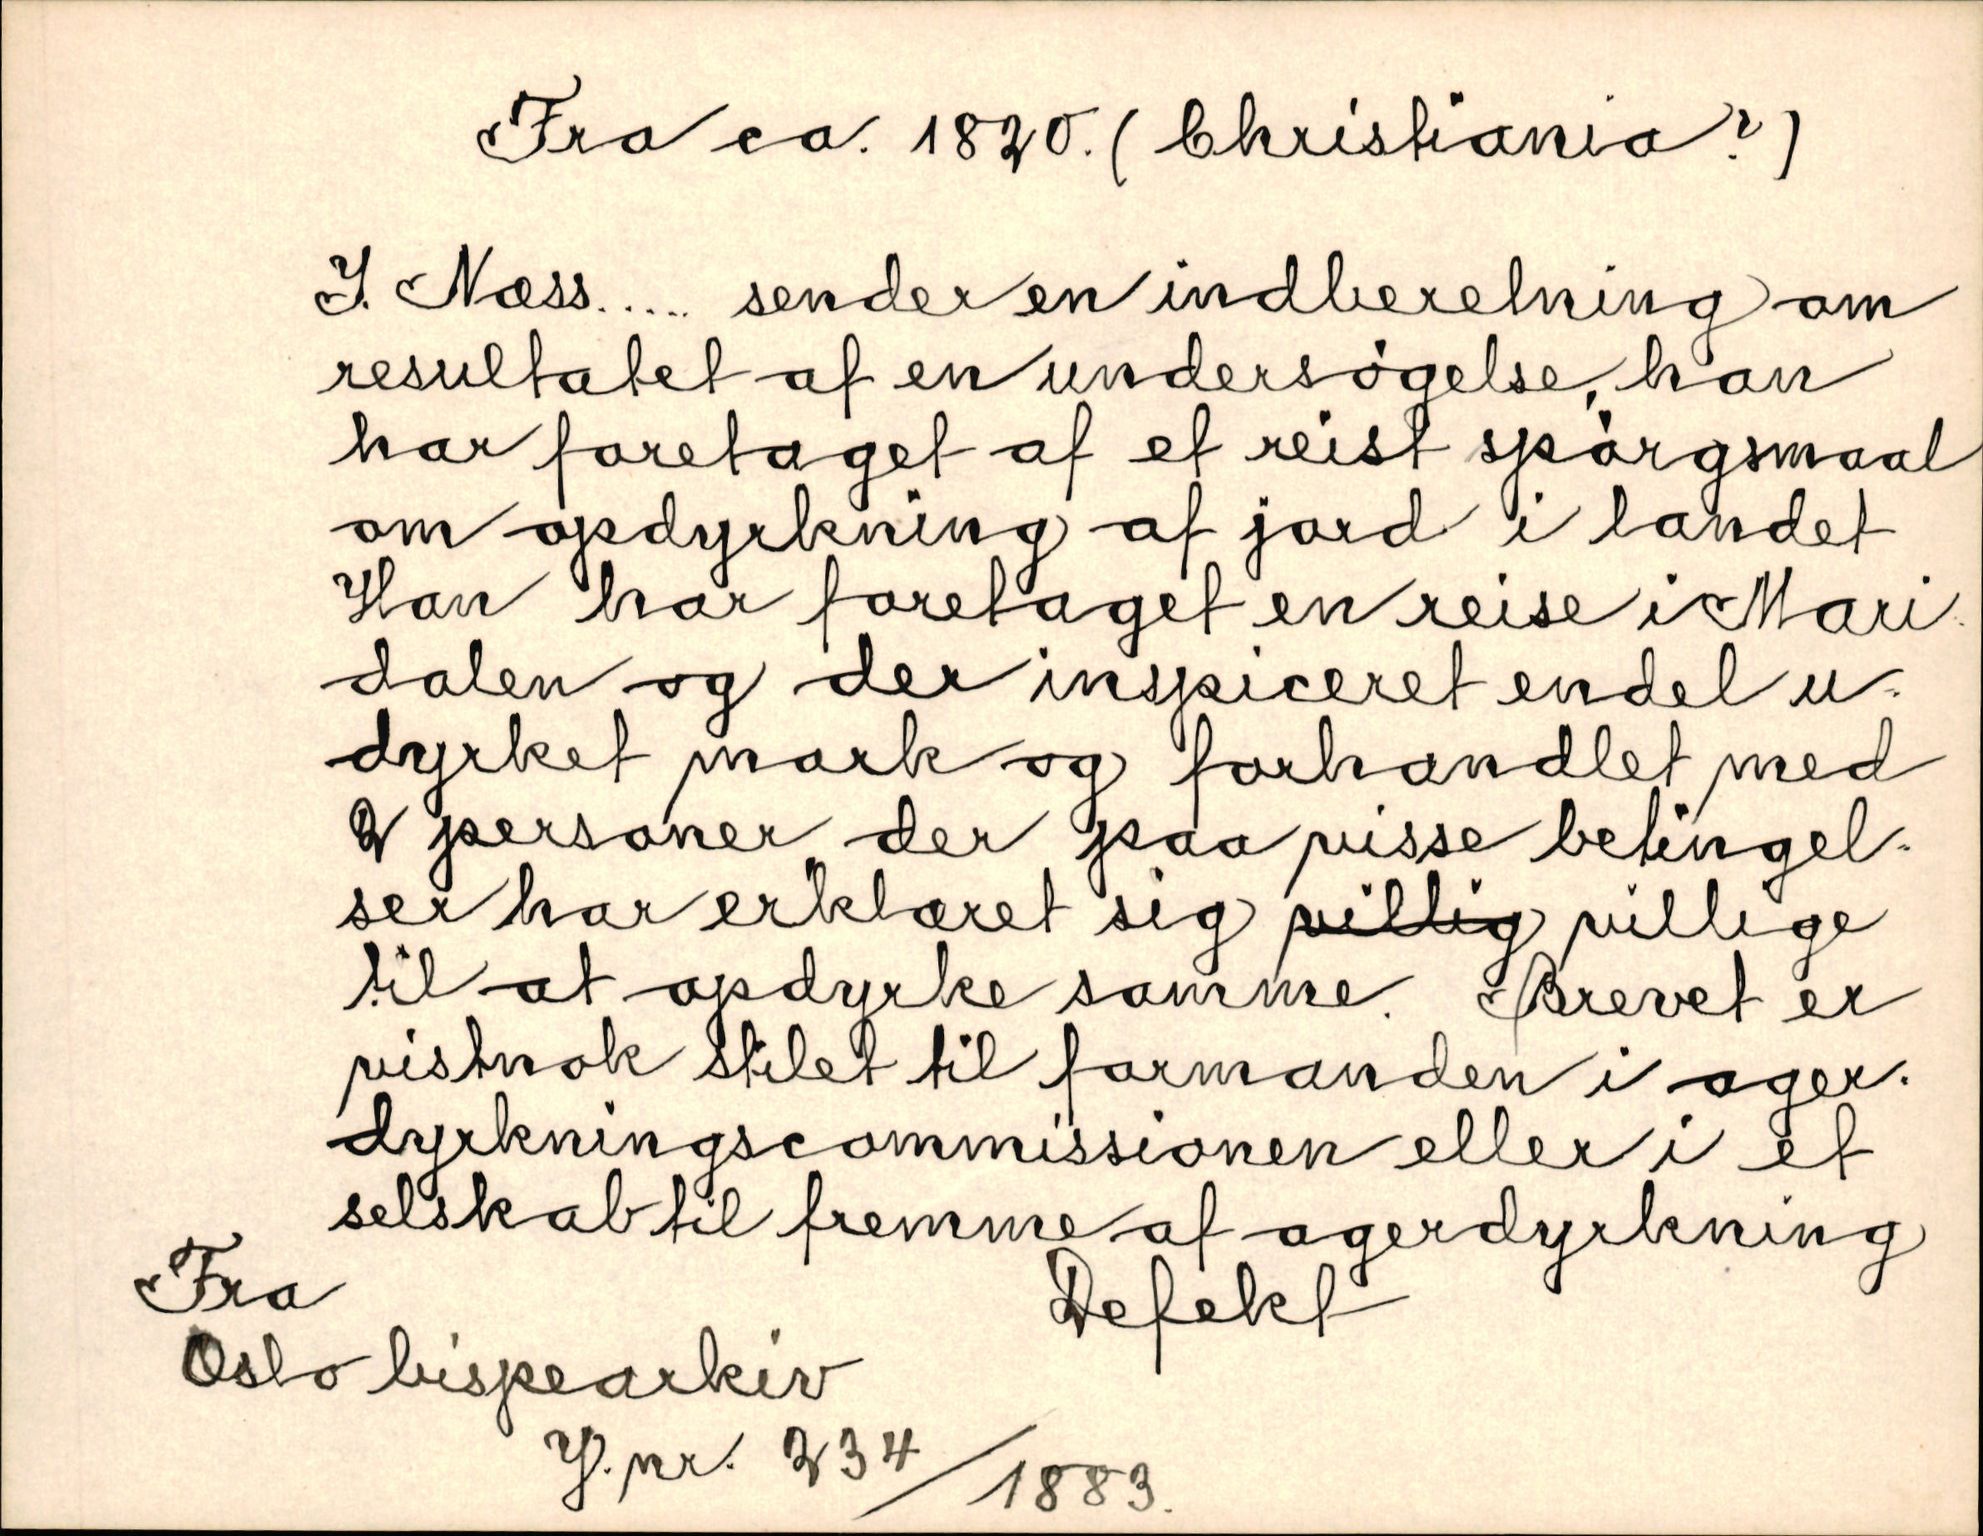 Fra ca. 1820. (Christiania?)
J. Næss..... sender en indberetning om
resultatet af en undersøgelse, han
har foretaget af et reist spørgsmaal
om opdyrkning af jord i landet
Han har foretaget en reise i Mari-
dalen og der inspiceret endel u-
dyrket mark og forhandlet med
2 personer, der paa visse betingel-
ser har erklæret sig villig villige
til at opdyrke samme. Brevet er
vistnok stilet til formanden i ager-
dyrkningscommissionen eller i et
selskab til fremme af agerdyrkning
Fra Defekt
Oslo bispearkiv
J. nr. 234/1883.